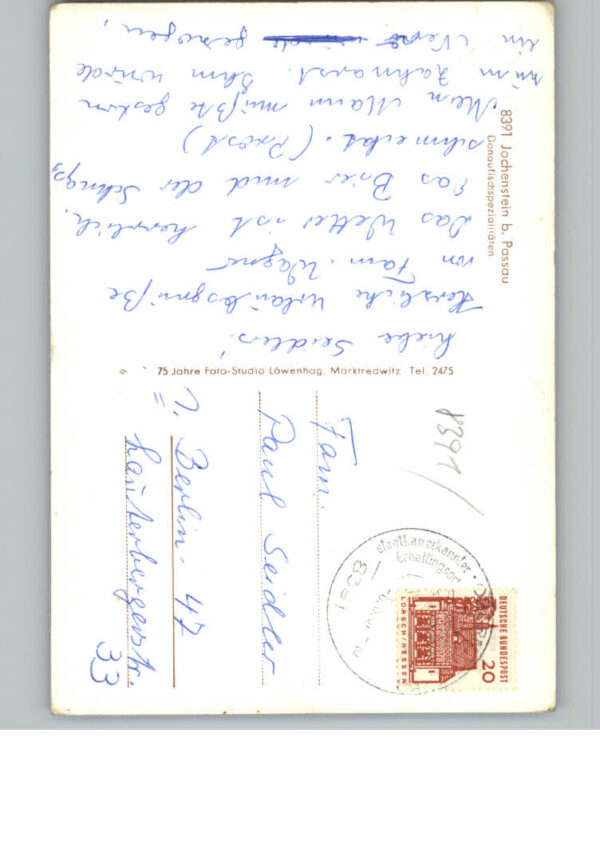 8391 Jochenstein b. Passau
Donaufischspezialitäten
Liebe Seidlers!
Herzliche Urlaubsgrüße
von Fam. Wagner
Das Wetter ist herrlich,
das Bier und der Schnaps
schmeckt. (Prost)
Mein Mann mußte gestern
zum Zahnarzt. Ihm würde
ein Nerv gezogen,
75 Jahre Foto-Studio Löwenhag, Marktredwitz Tel. 2475
8391
Fam.
Paul Seidler
1 Berlin-47
Lauterbergerstr.
33
staatl. anerkannter
Erholungsort
DEUTSCHE BUNDESPOST
20
LORSCH/HESSEN